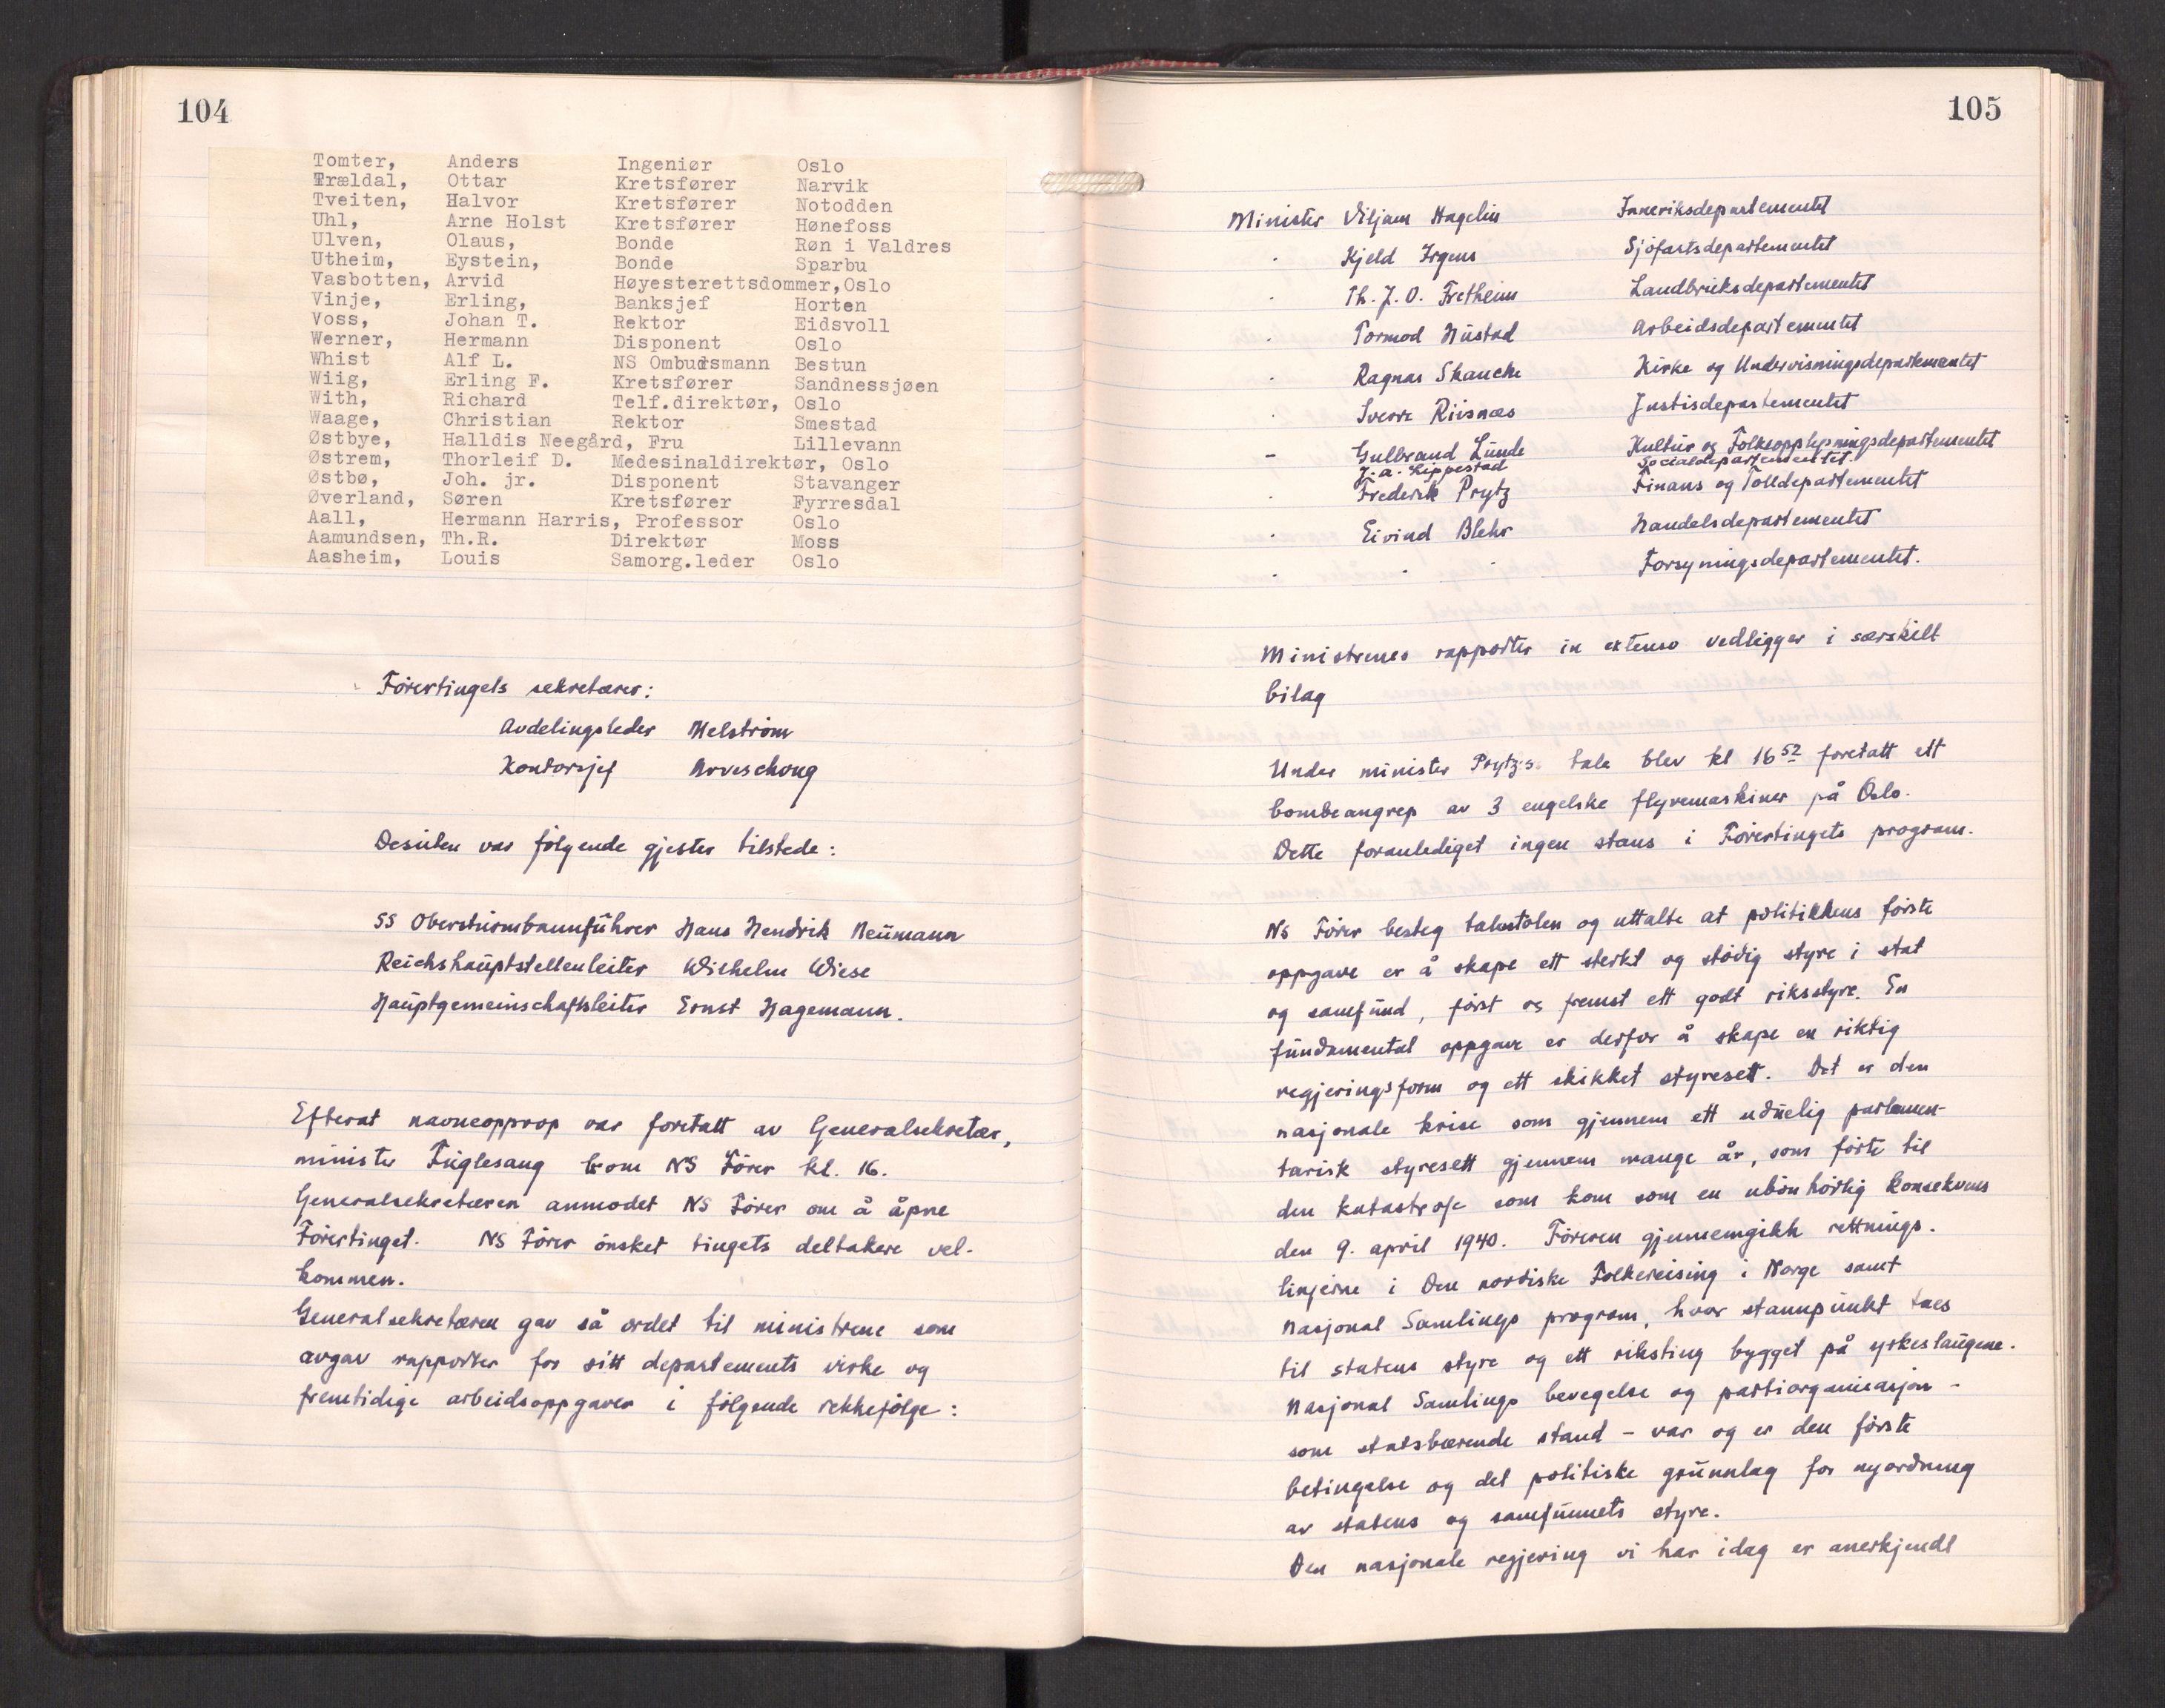 104
Tomter, Anders Ingeniør Oslo
Trældal, Ottar Kretsfører Narvik
Tveiten, Halvor Kretsfører Notodden
Uhl, Arne Holst Kretsfører Hønefoss
Ulven, Olaus, Bonde Røn i Valdres
Utheim, Eystein, Bonde Sparbu
Vasbotten, Arvid Høyesterettsdommer, Oslo
Vinje, Erling, Banksjef Horten
Voss, Johan T. Rektor Eidsvoll
Werner, Hermann Disponent Oslo
Whist Alf L. NS Ombudsmann Bestun
Wiig, Erling F. Kretsfører Sandnessjøen
With, Richard Telf.direktør, Oslo
Waage, Christian Rektor Smestad
Østbye, Halldis Neegård, Fru Lillevann
Østrem, Thorleif D. Medesinaldirektør, Oslo
Østbø, Joh. jr. Disponent Stavanger
Øverland, Søren Kretsfører Fyrresdal
Aall, Hermann Harris, Professor Oslo
Aamundsen, Th.R. Direktør Moss
Aasheim, Louis Samorg.leder Oslo
Førertingets sekretærer:
Avdelingsleder Melstrøm
Kontorsjef Arveschoug
Desuten var følgende gjester tilstede:
SS Obersturmbannführer Hans Hendrik Neumann
Reichshauptstellenleiter Wilhelm Wiese
Hauptgemeinschaftsleiter Ernst Hagemann.
Efterat navneopprop var foretatt av Generalsekretær,
minister Fuglesang kom NS Fører kl. 16.
Generalsekretæren anmodet NS Fører om å åpne
Førertinget. NS Fører ønsket tingets deltakere vel-
kommen.
Generalsekretæren gav så ordet til ministrene som
avgav rapporter for sitt departements virke og
fremtidige arbeidsoppgaver i følgende rekkefølge:
105
Minister Viljam Hagelin Innenriksdepartementet
" Kjeld Irgens Sjøfartsdepartementet
" Th. J. O. Fretheim Landbruksdepartementet
" Tormod Hustad Arbeidsdepartementet
" Ragnar Skancke Kirke og Undervisningsdepartementet
" Sverre Riisnæs Justisdepartementet
" Gulbrand Lunde Kultur og Folkeopplysningsdepartementet
J. A. Lippestad Socialdepartementet.
" Frederik Prytz Finans og Tolldepartementet
" Eivind Blehr Handelsdepartementet
" " " Forsyningsdepartementet.
Ministrenes rapporter in extenso vedligger i særskilt
bilag
Under minister Prytz's tale blev kl 16 52 foretatt ett
bombeangrep av 3 engelske flyvemaskiner på Oslo.
Dette foranlediget ingen stans i Førertingets program.
NS Fører besteg talerstolen og uttalte at politikkens første
oppgave er å skape ett sterkt og stødig styre i stat
og samfund, først og fremst ett godt riksstyre. En
fundamental oppgave er derfor å skape en riktig
regjeringsform og ett skikket styresett. Det er den
nasjonale krise som gjennem ett uduelig parlamen-
tarisk styresett gjennem mange år, som førte til
den katastrofe som kom som en ubønhørlig konsekvens
den 9. april 1940. Føreren gjennemgikk rettnings-
linjerne i Den nordiske Folkereising i Norge samt
Nasjonal Samlings program, hvor stannpunkt taes
til statens styre og ett riksting bygget på yrkeslaugene.
Nasjonal Samlings bevegelse og partiorganisasjon -
som statsbærende stand - var og er den første
betingelse og det politiske grunnlag for nyordning
av statens og samfunnets styre.
Den nasjonale regjering vi har idag er anerkjendt